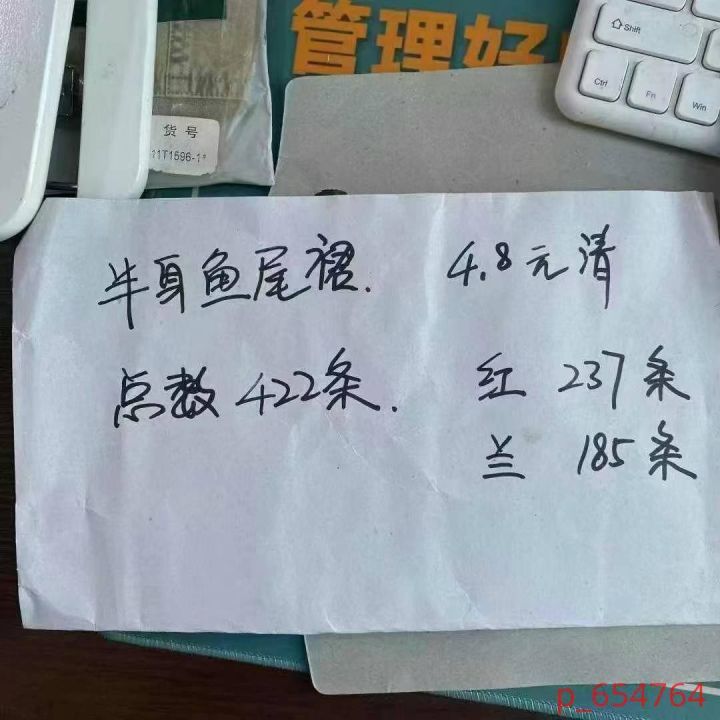 管理好
Shift
Ctrl
Fn
Win
货号
11T1596-1#
半身鱼尾裙. 4.8元清
点数422条. 红 237条
兰 185条
p_654764